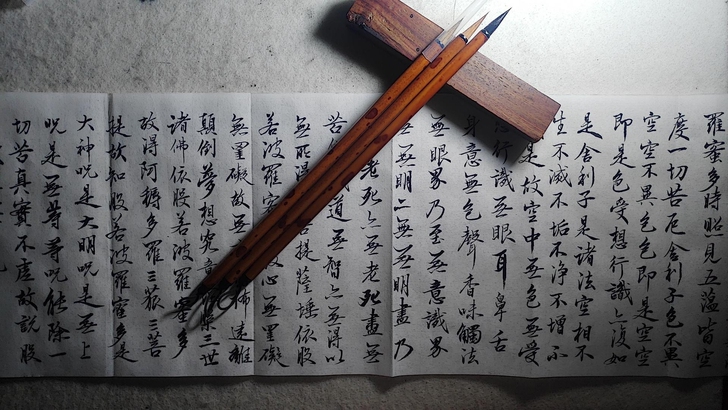 羅蜜多時照見五蘊皆空
度一切苦厄舍利子色不異
空空不異色色即是空空
即是色受想行識亦復如
是舍利子是諸法空相不
生不滅不垢不淨不增不
是故空中無色無受
行識無眼耳鼻舌
身意無色聲香味觸法
無眼界乃至無意識界
無明亦無無明盡乃
老死亦無老死盡無
苦道無智亦無得以
無所得菩提薩埵依般
若波羅故心無罣礙
無罣礙故無怖遠離
顛倒夢想究竟槃三世
諸佛依般若波羅蜜多
故得阿耨多羅三藐三菩
提故知般若波羅蜜多是
大神咒是大明咒是無上
咒是無等等咒能除一
切苦真實不虛故說般